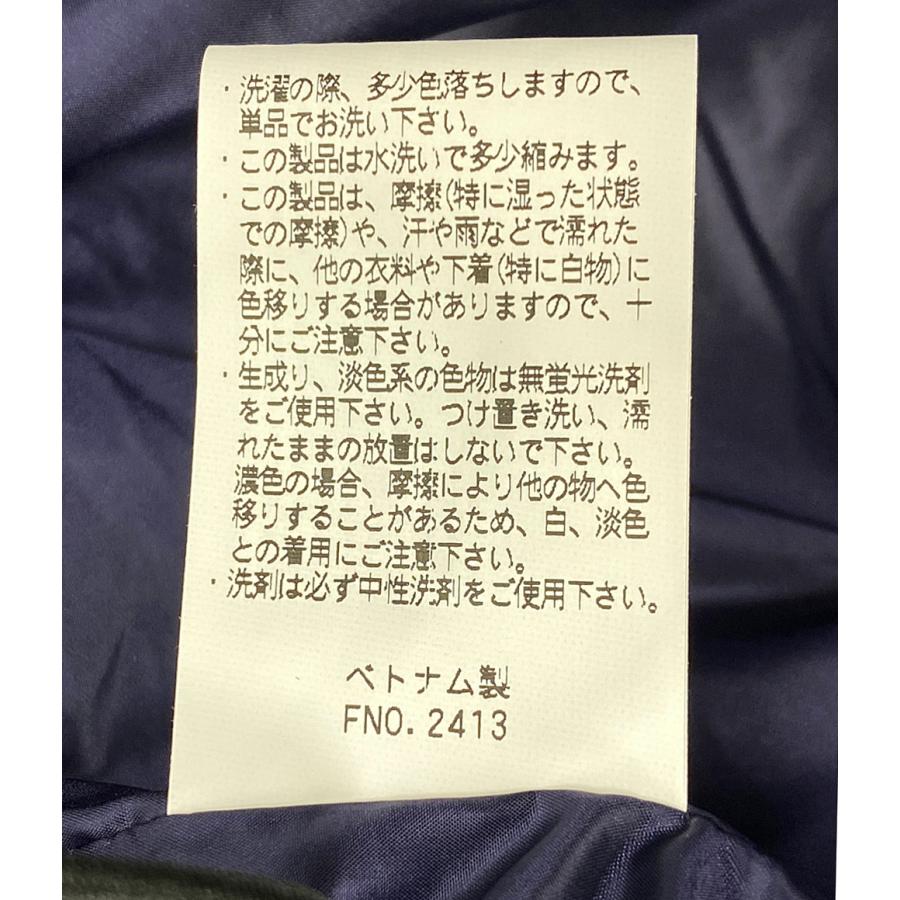 ・洗濯の際、多少色落ちしますので、
単品でお洗い下さい。
・この製品は水洗いで多少縮みます。
・この製品は、摩擦(特に湿った状態
での摩擦)や、汗や雨などで濡れた
際に、他の衣料や下着(特に白物)に
色移りする場合がありますので、十
分にご注意下さい。
・生成り、淡色系の色物は無蛍光洗剤
をご使用下さい。つけ置き洗い、濡
れたままの放置はしないで下さい。
濃色の場合、摩擦により他の物へ色
移りすることがあるため、白、淡色
との着用にご注意下さい。
・洗剤は必ず中性洗剤をご使用下さい。
ベトナム製
FNO.2413